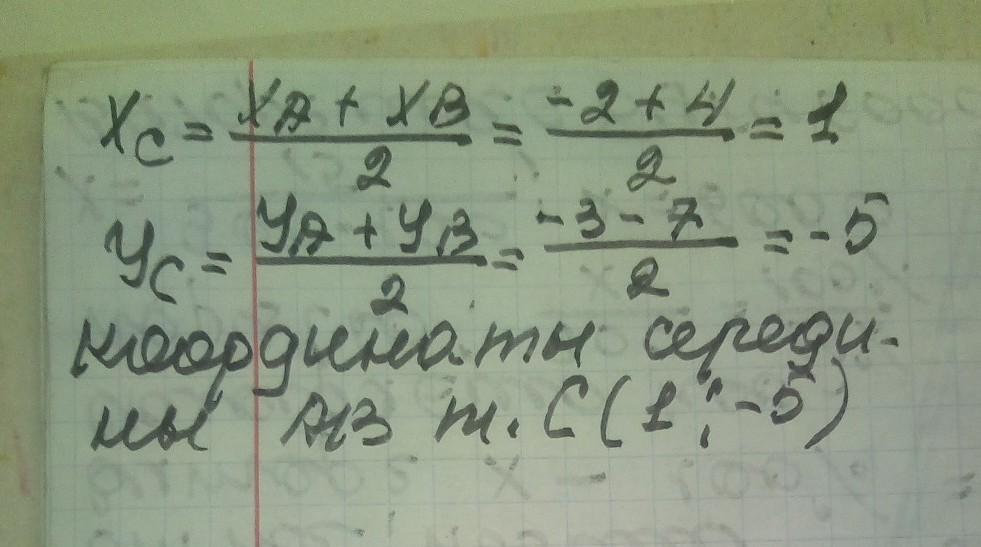 Xc = XA + XB / 2 = -2 + 4 / 2 = 1
Yc = YA + YB / 2 = -3 - 7 / 2 = -5
координаты середи-
ны AB т. C (1; -5)